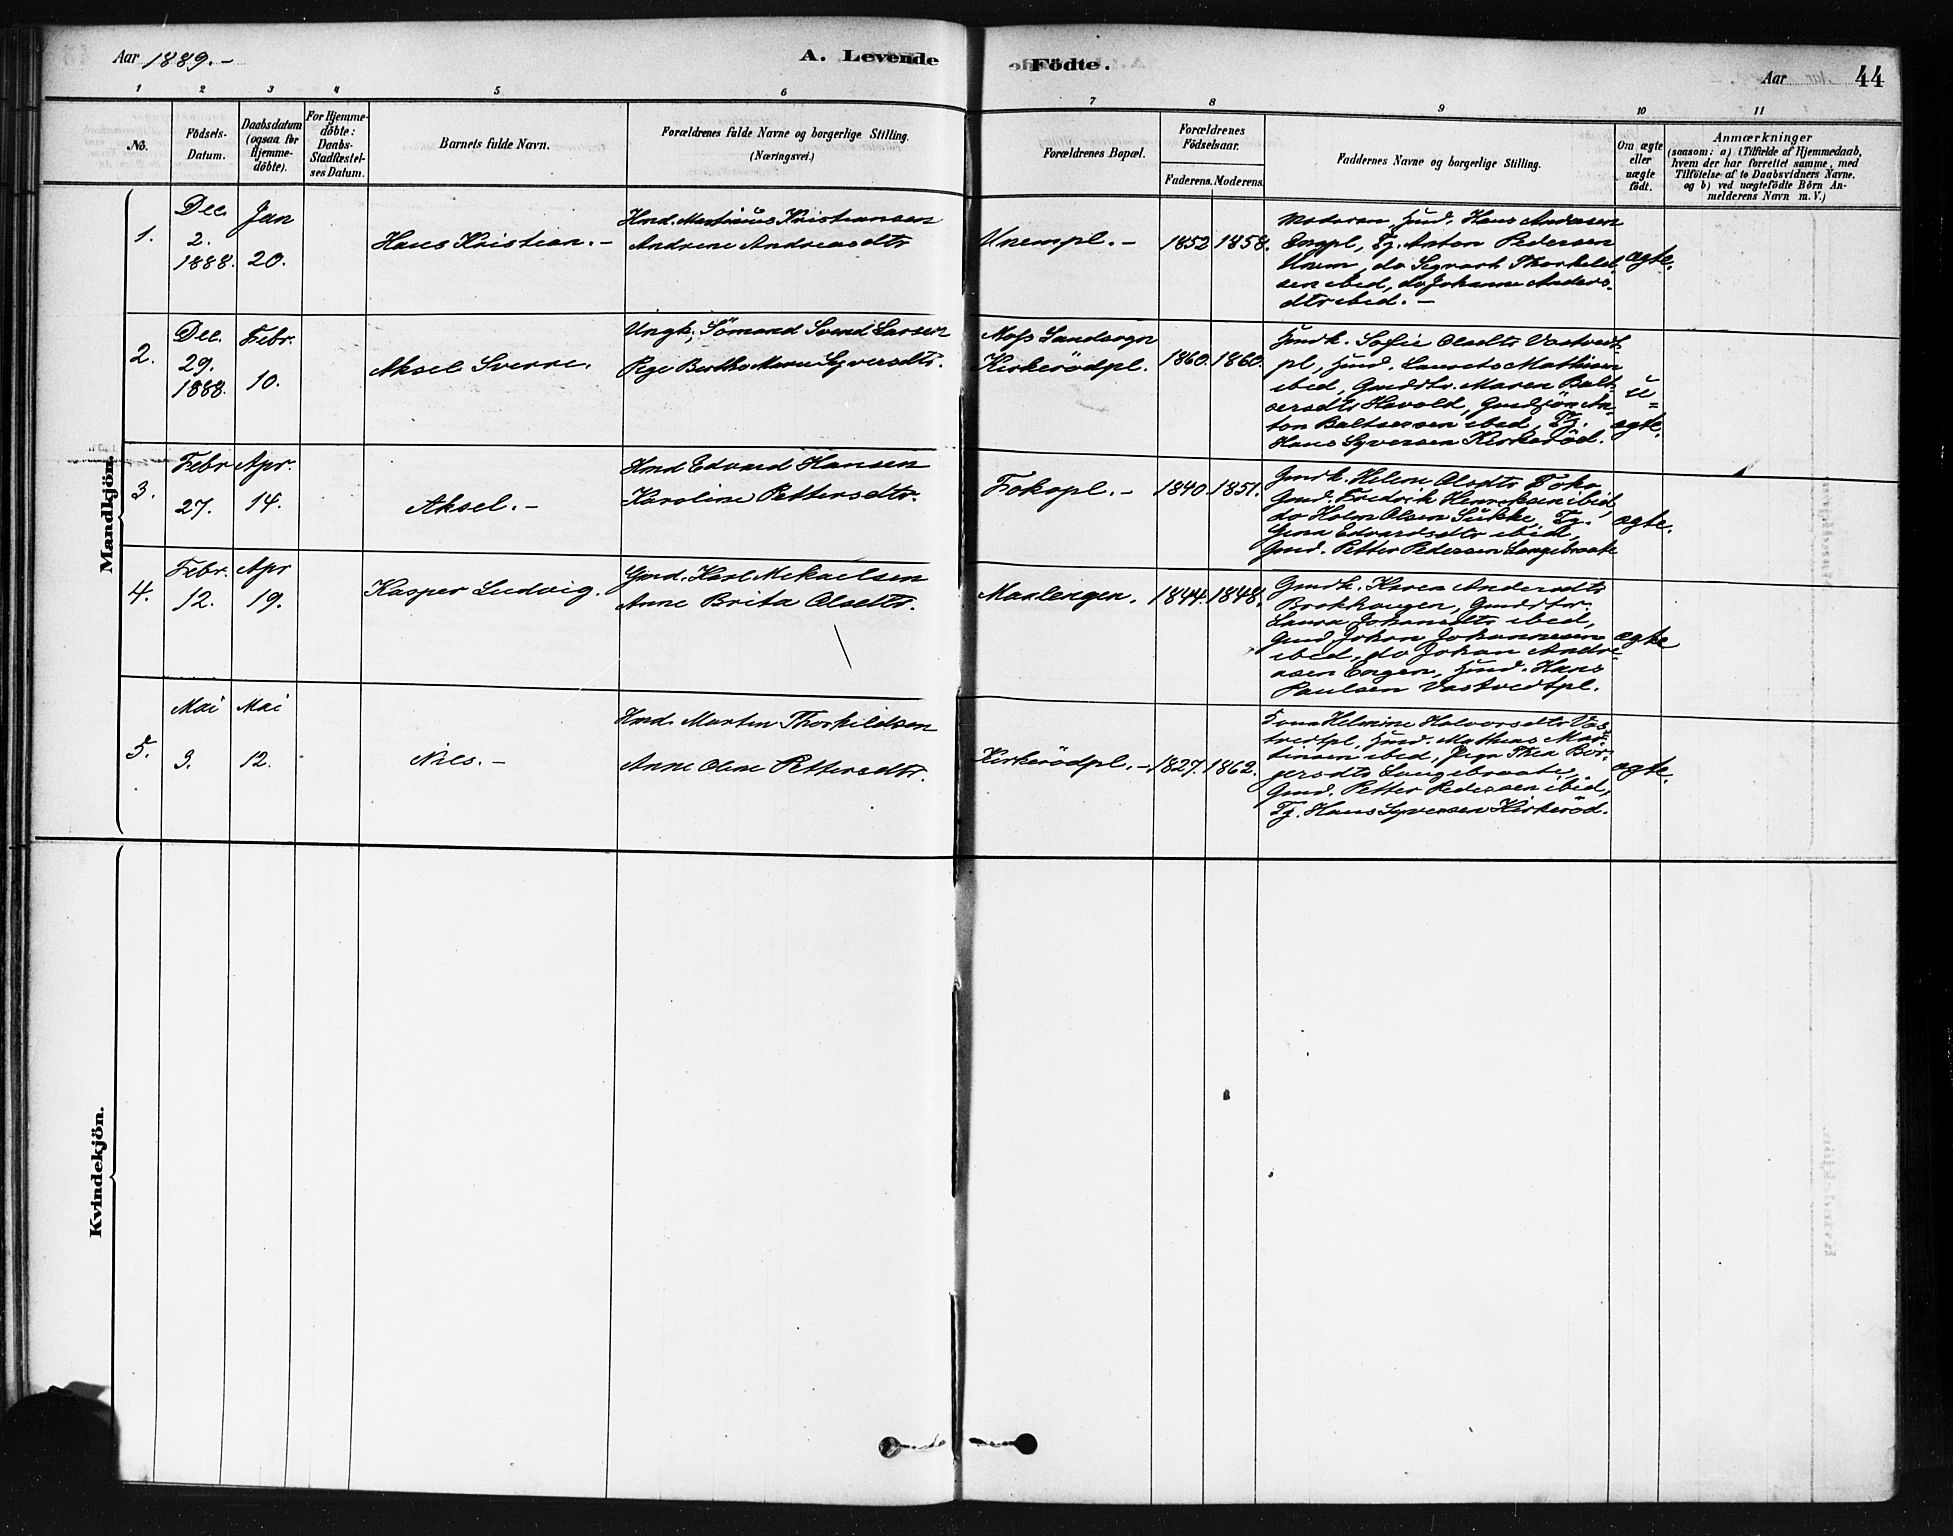 Aar 1889.-
A. Levende Födte.
Aar 44
1 2 3 4 5 6 7 8 9 10 11
No.
Födsels-
Datum.
Daabsdatum
(ogsaa for
Hjemme-
döbte).
For Hjemme-
döbte:
Daabs-
Stadfæstel-
ses Datum.
Barnets fulde Navn.
Forældrenes fulde Navne og borgerlige Stilling.
(Næringsvei.)
Forældrenes Bopæl.
Forældrenes
Födselsaar.
Faderens. Moderens.
Faddernes Navne og borgerlige Stilling.
Om ægte
eller
uægte
födt.
Anmærkninger
(saasom: a) i Tilfælde af Hjemmedaab,
hvem der har forrettet samme, med
Tilföielse af to Daabsvidners Navne.
og b) ved uægtefödte Börn An-
melderens Navn m. V.)
Mandkjön.
1.
Dec.
2.
1888.
Jan
20.
Hans Kristian.-
Hmd. Martinius Kristiansen
Andrine Andreasdtr
Unempl.-
1852 1858.
Moderen, Hmd. Hans Andersen
Engpl, Tj. Anton Pedersen
Unem, do Sigvart Thorkild
sen ibid, do Johanne Anders-
dtr ibid.-
ægte.
2.
Dec.
29.
1888.
Febr.
10.
Aksel Sverre.
Ungk, Sömand Svend Larsen
Pige Berthe Marie Syversdtr.
Moss Landsogn
Kirkerödpl.
1860. 1860.
Hmdk. Sofie Olsdtr Vastvedt-
pl, Hmd. Laurits Mathisen
ibid, Gmddtr. Maren Balt-
sersdtr Hevold, Gmdsön An-
ton Baltsersen ibid, Tj.
Hans Syversen Kirkeröd.
u=
ægte.
3.
Febr
27.
Apr.
14.
Aksel.-
Hmd Edvard Hansen
Karoline Pettersdtr.
Fokopl.-
1840. 1851.
Gmdk. Helene Olsdtr Foko
Gmd. Fredrik Henriksen ibid,
do Holm Olsen Sukke, Tj.
Gina Edvardsdtr ibid,
Gmd. Petter Pedersen Langebraate
ægte.
4.
Febr.
12.
Apr
19.
Kasper Ludvig.
Gmd. Karl Mekaelsen
Anne Brita Olsdtr.
Maxlengen.
1844. 1848.
Gmdk. Karen Andersdtr
Brokhaugen, Gmddtr.
Laura Johansdtr ibid,
Gmd. Johan Johannesen
ibid, do Johan Andre-
asen Engen, Hmd. Hans
Paulsen Vastvedtpl.
ægte
5.
Mai
3.
Mai
12.
Nils.-
Hmd. Martin Thorkildsen
Anne Oline Pettersdtr.
Kirkerödpl.-
1827. 1862.
Kona Helmine Halvorsdtr Vas-
tvedtpl, Hmd. Mathias Mar-
tinsen ibid, Pige Thea Bör-
gersdtr Langebraate,
Gmd. Petter Pedersen ibid,
Tj. Hans Syversen Kirkeröd.
ægte.
Kvindekjön.